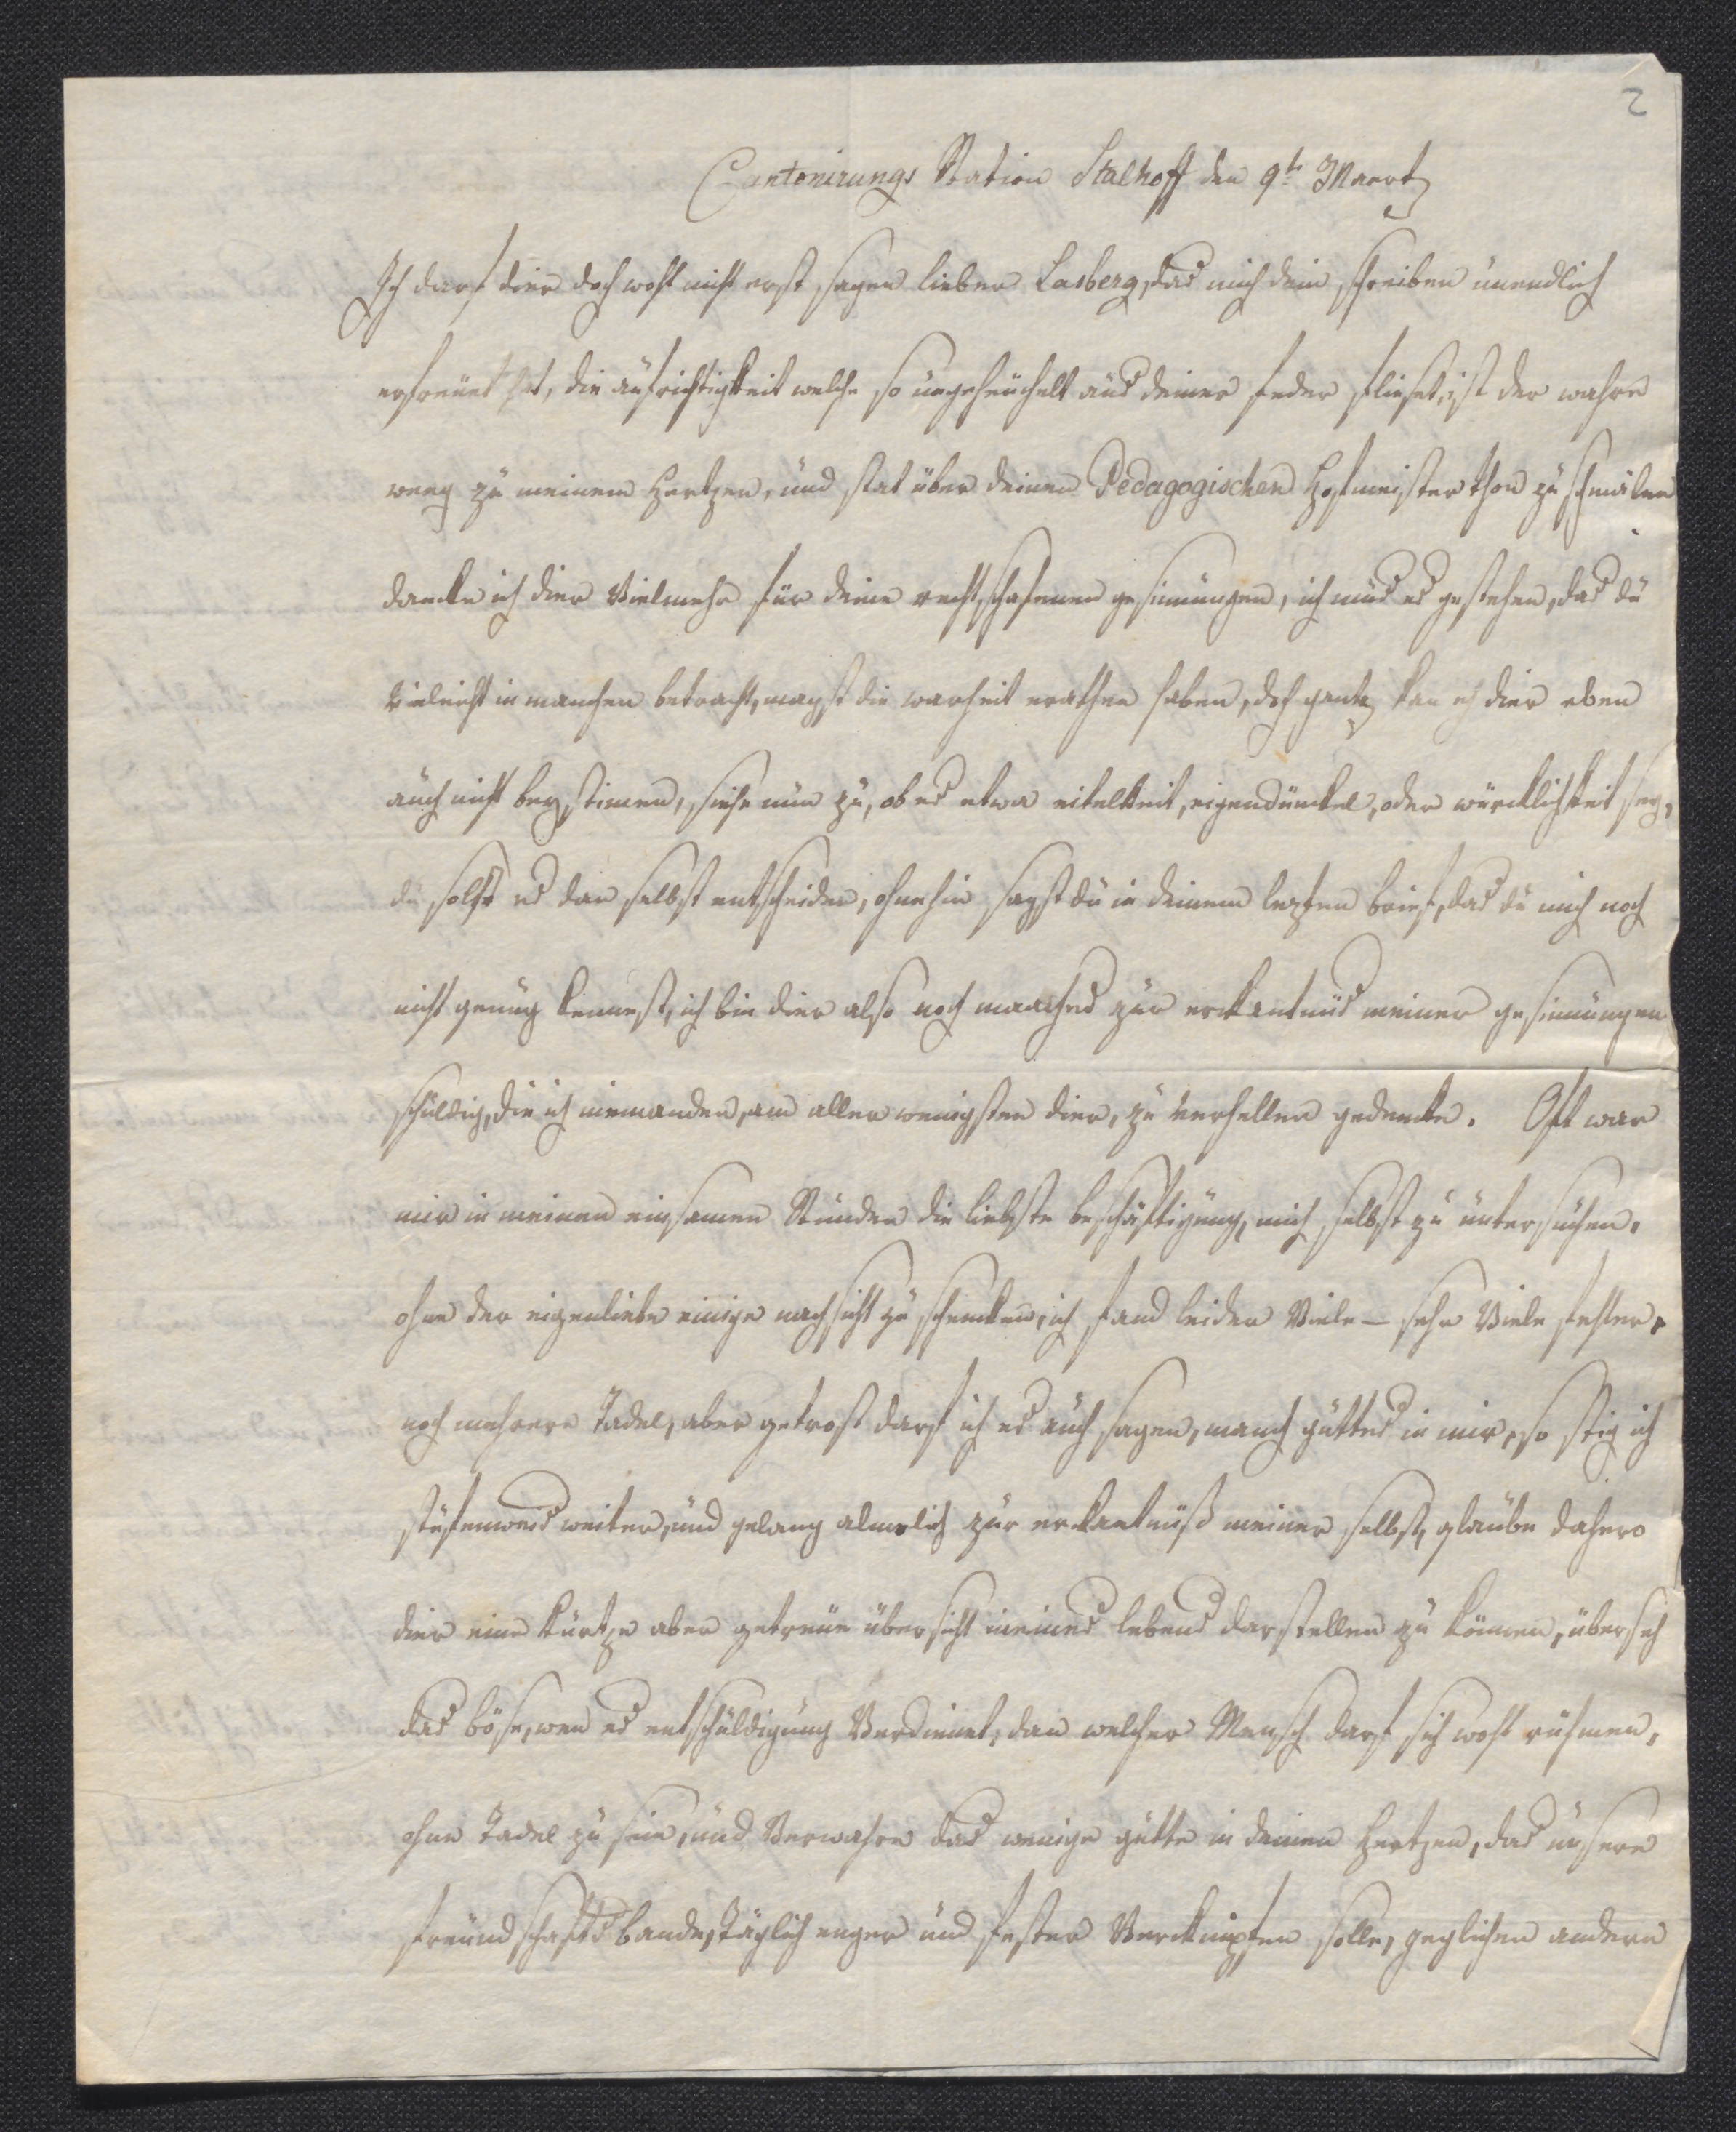 2
Cantonirungs Station Stalhoff den 9t Maertz
Ich darf dier doch wohl nicht erst sagen lieber Lasberg, das mich dein schreiben unendlich
erfreüet hat, die aufrichtigkeit welche so ungeheüchelt aus deiner feder flieset, ist der wahre
weeg zu meinem Hertzen, und stat über deinen Pedagogischen Hofmeister thon zu schmälen
dancke ich dier Vielmehr für deine rechtschafenen gesinnungen, ich mus es gestehen, das du
Vieleicht in manchen betracht, magst die warheit erathen haben, doch gantz kan ich dier eben
auch nicht beystimen, siehe nun zu, ob es etwa eitelkeit, eigendünckel, oder würcklichkeit sey,
du solst es dan selbst entscheiden, ohnehin sagst du in deinem lezten brief, das du mich noch
nicht genug kennest, ich bin dier also noch manches zur erkantnus meiner gesinnungen
schuldig, die ich niemanden, am aller wenigsten dier, zu verhellen gedencke. Oft war
mir in meinen einsamen Stunden die liebste beschäftigung, mich selbst zu untersuchen,
ohne der eigenliebe einige nachsicht zu schencken, ich fand leider Viele – sehr Viele fehler,
noch mehrere Tadel, aber getrost darf ich es auch sagen, manch guttes in mir, so stig ich
stufenweis weiter, und gelang almelich zur erkantnuß meiner selbst, glaube dahero
dier eine kurtze aber getreue übersicht meines lebens darstellen zu können, überseh
das böse, wen es entschuldigung Verdienet, dan welcher Mensch darf sich wohl rühmen,
ohne Tadel zu sein, und Verwahre das wenige gutte in deinen Hertzen, das unsere
freundschafts bande, Täglich enger und fester Verknipfen solle, jeglichen andern